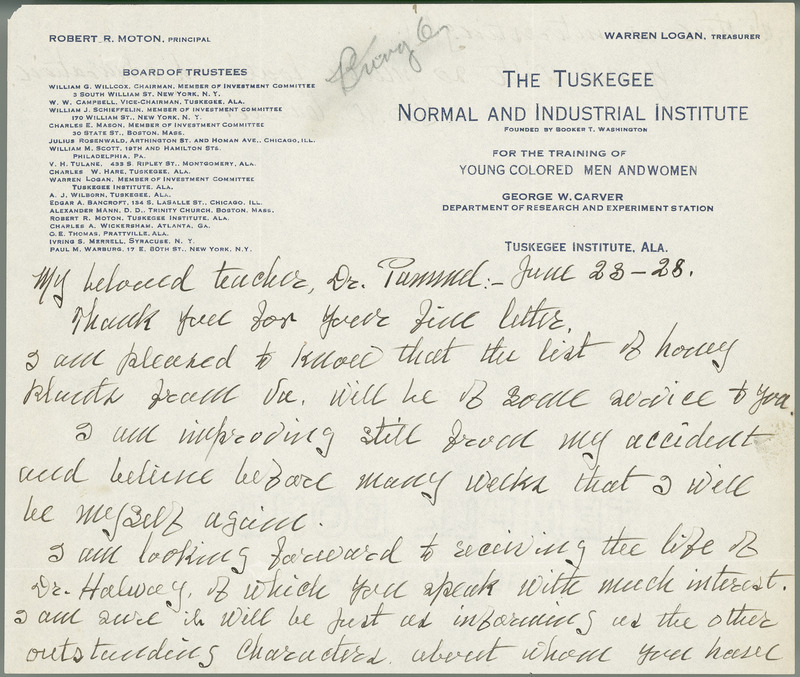 ROBERT R. MOTON, PRINCIPAL
WARREN LOGAN, TREASURER
BOARD OF TRUSTEES
WILLIAM G. WILLCOX, CHAIRMAN, MEMBER OF INVESTMENT COMMITTEE
3 SOUTH WILLIAM ST. NEW YORK, N. Y.
W. W. CAMPBELL, VICE-CHAIRMAN, TUSKEGEE, ALA.
WILLIAM J. SCHIEFFELIN, MEMBER OF INVESTMENT COMMITTEE
170 WILLIAM ST., NEW YORK, N. Y.
CHARLES E. MASON, MEMBER OF INVESTMENT COMMITTEE
30 STATE ST., BOSTON, MASS.
JULIUS ROSENWALD, ARTHINGTON ST. AND HOMAN AVE., CHICAGO, ILL.
WILLIAM M. SCOTT, 19TH AND HAMILTON STS.
PHILADELPHIA, PA.
V. H. TULANE, 433 S. RIPLEY ST., MONTGOMERY, ALA.
CHARLES W. HARE, TUSKEGEE, ALA.
WARREN LOGAN, MEMBER OF INVESTMENT COMMITTEE
TUSKEGEE INSTITUTE, ALA.
A. J. WILBORN, TUSKEGEE, ALA.
EDGAR A. BANCROFT, 134 S. LASALLE ST., CHICAGO, ILL.
ALEXANDER MANN, D. D., TRINITY CHURCH, BOSTON, MASS.
ROBERT R. MOTON, TUSKEGEE INSTITUTE, ALA.
CHARLES A. WICKERSHAM, ATLANTA, GA.
O. E. THOMAS, PRATTVILLE, ALA.
IVRING S. MERRELL, SYRACUSE, N. Y.
PAUL M. WARBURG, 17 E. 80TH ST., NEW YORK, N.Y.
THE TUSKEGEE
NORMAL AND INDUSTRIAL INSTITUTE
FOUNDED BY BOOKER T. WASHINGTON
FOR THE TRAINING OF
YOUNG COLORED MEN ANDWOMEN
GEORGE W. CARVER
DEPARTMENT OF RESEARCH AND EXPERIMENT STATION
TUSKEGEE INSTITUTE, ALA.
My beloved teacher, Dr. Pammel:- June 23-28.
Thank you for your fine letter.
I am pleased to know that the list of honey
plants from Va. will be of some service to you.
I am improving still from my accident
and believe before many weeks that I will
be myself again.
I am looking forward to receiving the life of
Dr. Halway, of which you speak with much interest.
I am sure it will be just as informing as the other
outstanding characters about whom you have